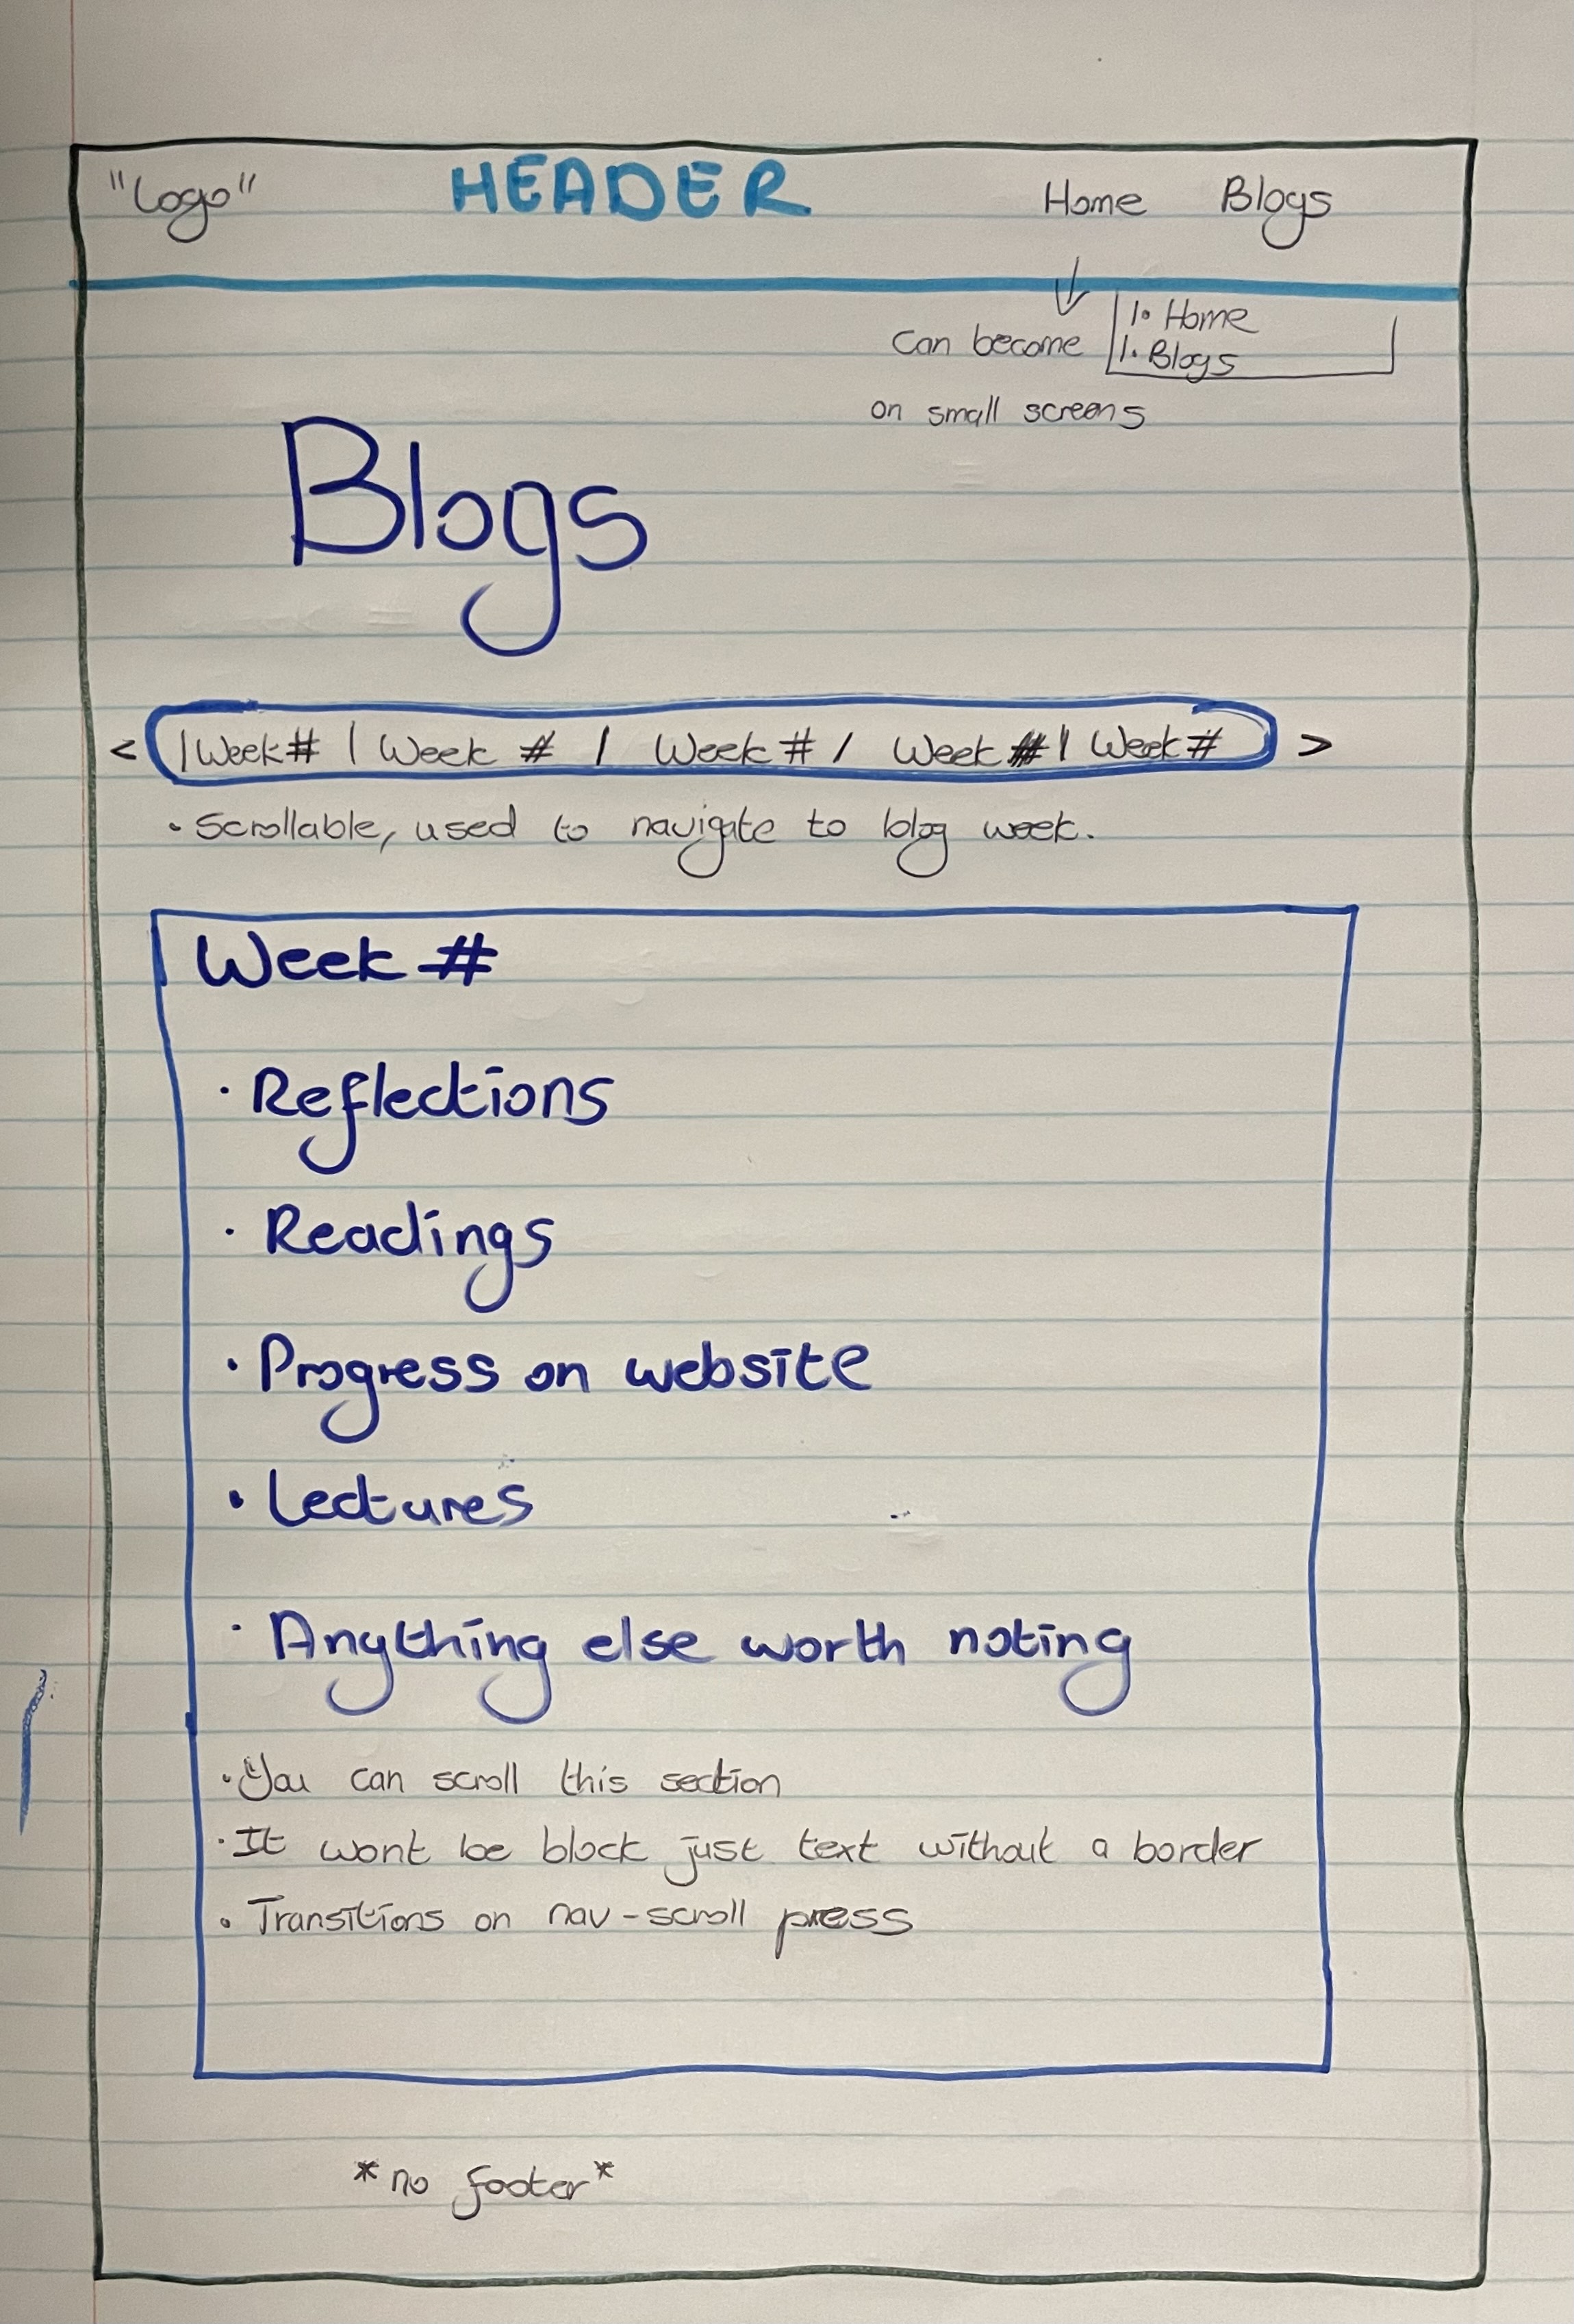 "Logo" HEADER Home Blogs
1. Home
Can become 1. Blogs
on small screens
Blogs
< | Week # | Week # / Week # / Week # | Week # >
• Scrollable, used to navigate to blog week.
Week #
• Reflections
• Readings
• Progress on website
• Lectures
• Anything else worth noting
• You can scroll this section
• It wont be block just text without a border
• Transitions on nav-scroll press
*no footer*